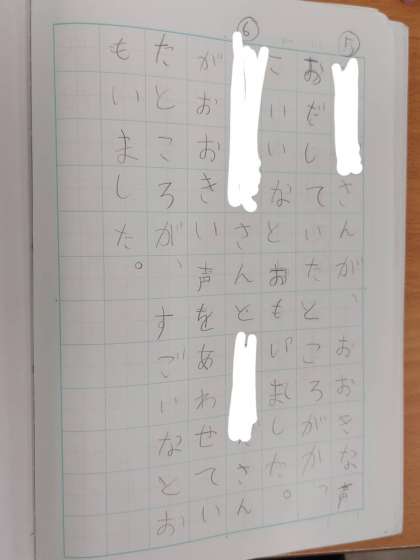 ⑤
さんが、おおきな声
おだしていたところがかっ
こいいなとおもいました。
⑥
さんと さん
がおおきい声をあわせてい
たところが、すごいなとお
もいました。